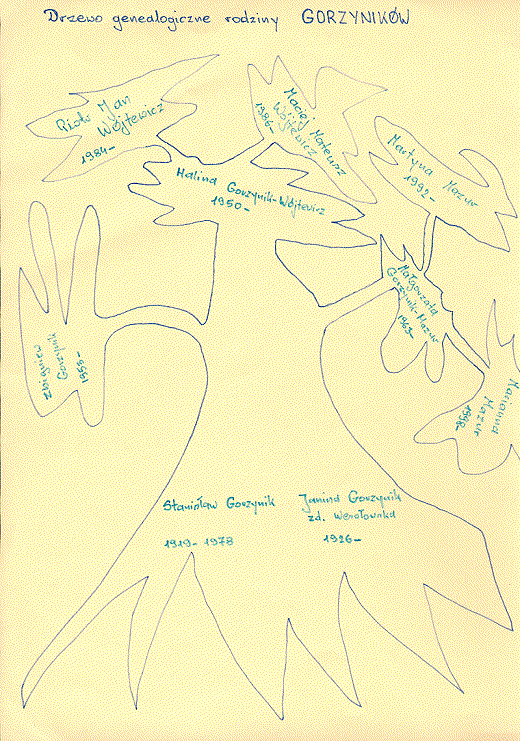 Drzewo genealogiczne rodziny GORZYNIKÓW
Piotr Jan
Wójtewicz
1984-
Maciej Mateusz
Wójtewicz
1986-
Martyna Mazur
1992-
Halina Gorzynik-Wójtewicz
1950-
Małgorzata
Gorzynik-Mazur
1963-
Zbigniew
Gorzynik
1953-
Marianna
Mazur
1998-
Stanisław Gorzynik
1919- 1978
Janina Gorzynik
zd. Wesołowska
1926-